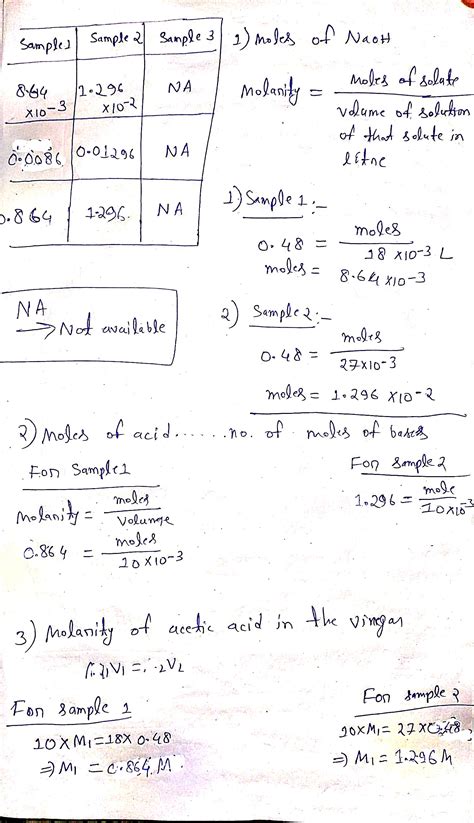 Sample1 Sample 2 Sample 3
8.64 ×10-3 1.296 ×10-2 NA
0.0086 0.01296 NA
0.864 1.296 NA
NA
→ Not available
1) Moles of NaOH
Molarity = Moles of solute / volume of solution of that solute in litre
1) Sample 1:-
0.48 = moles / 18 ×10-3 L
moles = 8.64 ×10-3
2) Sample 2:-
0.48 = moles / 27×10-3
moles = 1.296 ×10-2
2) Moles of acid....... no. of moles of bases
For Sample1
Molarity = moles / Volume
0.864 = moles / 10×10-3
For sample 2
1.296 = mole / 10×10-3
3) Molarity of acetic acid in the vinegar
V1 = V2
For sample 1
10×M1=18× 0.48
⇒M1 = 0.864 M.
For sample 2
10×M1= 27×0.48
⇒ M1 = 1.296M